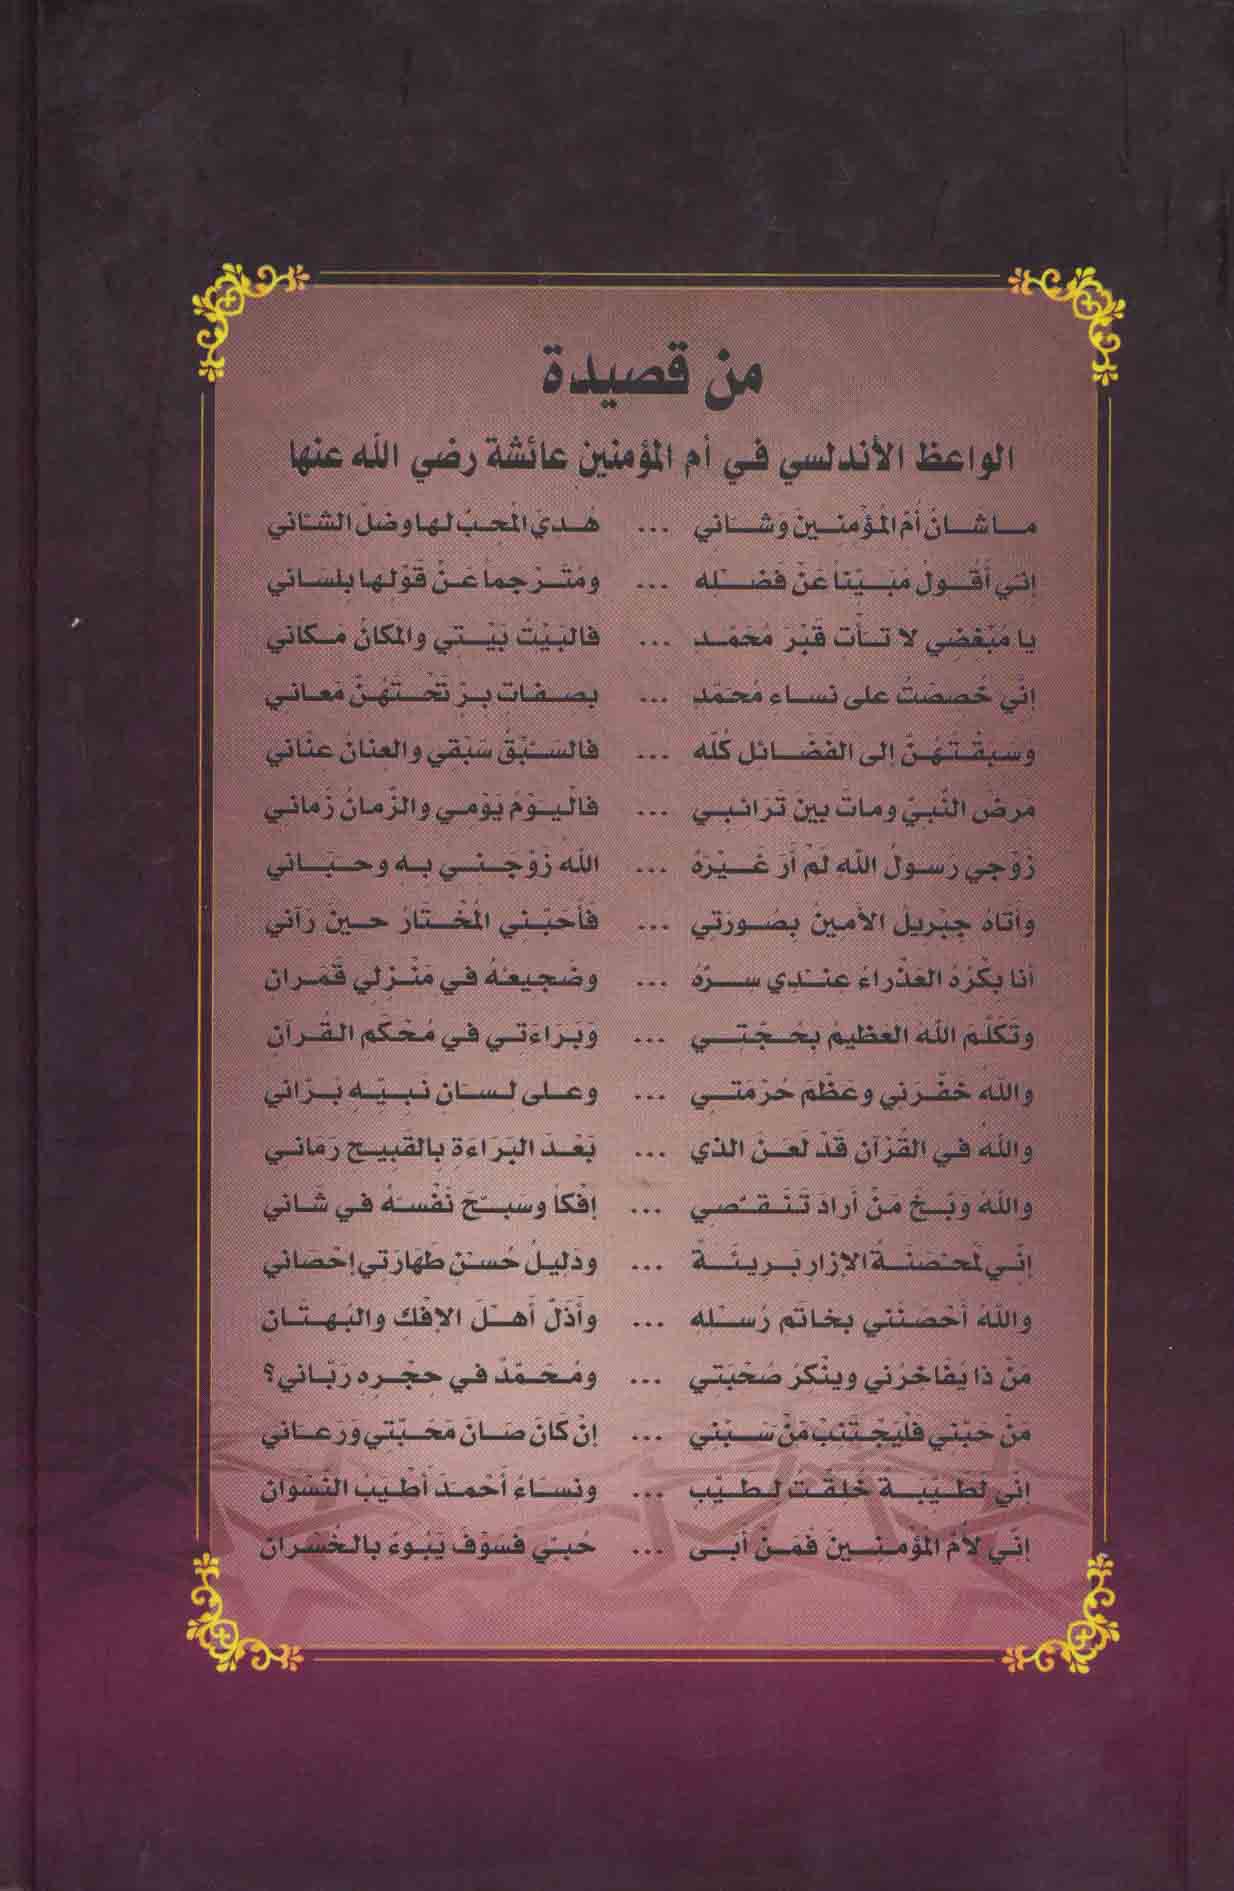 من قصيدة
الواعظ الأندلسي في أم المؤمنين عائشة رضي الله عنها
ما شانُ أُم المُؤْمِنِينَ وَشَانِي ... هُدِيَ المُحِبُّ لها وضلَّ الشَّاني
إني أَقُولُ مُبَيِّناً عَنْ فَضْلِه ... ومُتَرْجِماً عَنْ قَوْلِها بِلِسَاني
يا مُبْغِضِي لا تَأْتِ قَبْرَ مُحَمَّدٍ ... فالبَيْتُ بَيْتِي والمَكانُ مَكاني
إنِّي خُصِصْتُ على نساءِ مُحَمَّدٍ ... بصفاتِ بِرٍّ تَحْتَهُنَّ مَعاني
وسَبَقْتُهُنَّ إلى الفَضَائِلِ كُلِّه ... فالسَّبْقُ سَبْقِي والعِنانُ عِنَاني
مَرِضَ النَّبِيُّ وماتَ بينَ تَرَائبي ... فالْيَوْمُ يَوْمِي والزَّمانُ زَماني
زَوْجي رسولُ اللهِ لَمْ أَرَ غَيْرَهُ ... اللهُ زَوَّجَني بِهِ وحَبَاني
وأتَاهُ جِبْرِيلُ الأمينُ بِصُورَتِي ... فَأَحَبَّنِي المُخْتَارُ حينَ رآني
أنا بِكْرُهُ العَذْراءُ عِنْدِي سِرُّهُ ... وضَجِيعُهُ في مَنْزِلِي قَمَرانِ
وتَكَلَّمَ اللهُ العظيمُ بِحُجَّتِي ... وبَرَاءَتِي في مُحْكَمِ القُرآنِ
واللهُ خَفَّرَني وعَظَّمَ حُرْمَتِي ... وعلى لِسَانِ نَبِيِّهِ بَرَّاني
واللهُ في القُرْآنِ قَدْ لَعَنَ الذي ... بَعْدَ البَرَاءَةِ بالقَبِيحِ رَماني
واللهُ وَبَّخَ مَنْ أَرادَ تَنَقُّصِي ... إفْكاً وسَبَّحَ نَفْسَهُ في شَاني
إنِّي لَمُحْصَنَةُ الإزارِ بَرِيئَةٌ ... ودَلِيلُ حُسْنِ طَهَارَتِي إحْصَاني
واللهُ أَحْصَنَنِي بخاتَمِ رُسْلِهِ ... وأَذَلَّ أَهْلَ الإفْكِ والبُهتَانِ
مَنْ ذا يُفَاخِرُني ويُنْكِرُ صُحْبَتِي ... ومُحَمَّدٌ في حِجْرِهِ رَبَّاني؟
مَنْ حَبَّنِي فَلْيَجْتَنِبْ مَنْ سَبَّنِي ... إنْ كَانَ صَانَ مَحَبَّتِي وَرَعَاني
إنِّي لَطَيِّبَةٌ خُلِقْتُ لِطَيِّبٍ ... ونِسَاءُ أَحْمَدَ أَطْيَبُ النِّسْوَانِ
إنِّي لأُمُّ المُؤْمِنِينَ فَمَنْ أَبَى ... حُبِّي فَسَوْفَ يَبُوءُ بالخُسْرَانِ